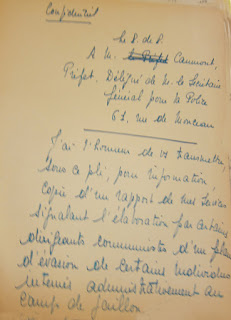 Confidentiel
Le P. de P.
A M. le Préfet Canmont,
Préfet, Délégué de M. le Secrétaire
Général pour la Police
61, rue de Monceau
J'ai l'honneur de vs transmettre,
sous ce pli, pour information
copie d'un rapport de mes services
signalant l'élaboration par certains
dirigeants communistes d'un plan
d'évasion de certains individus
internés administrativement au
camp de Gaillon.